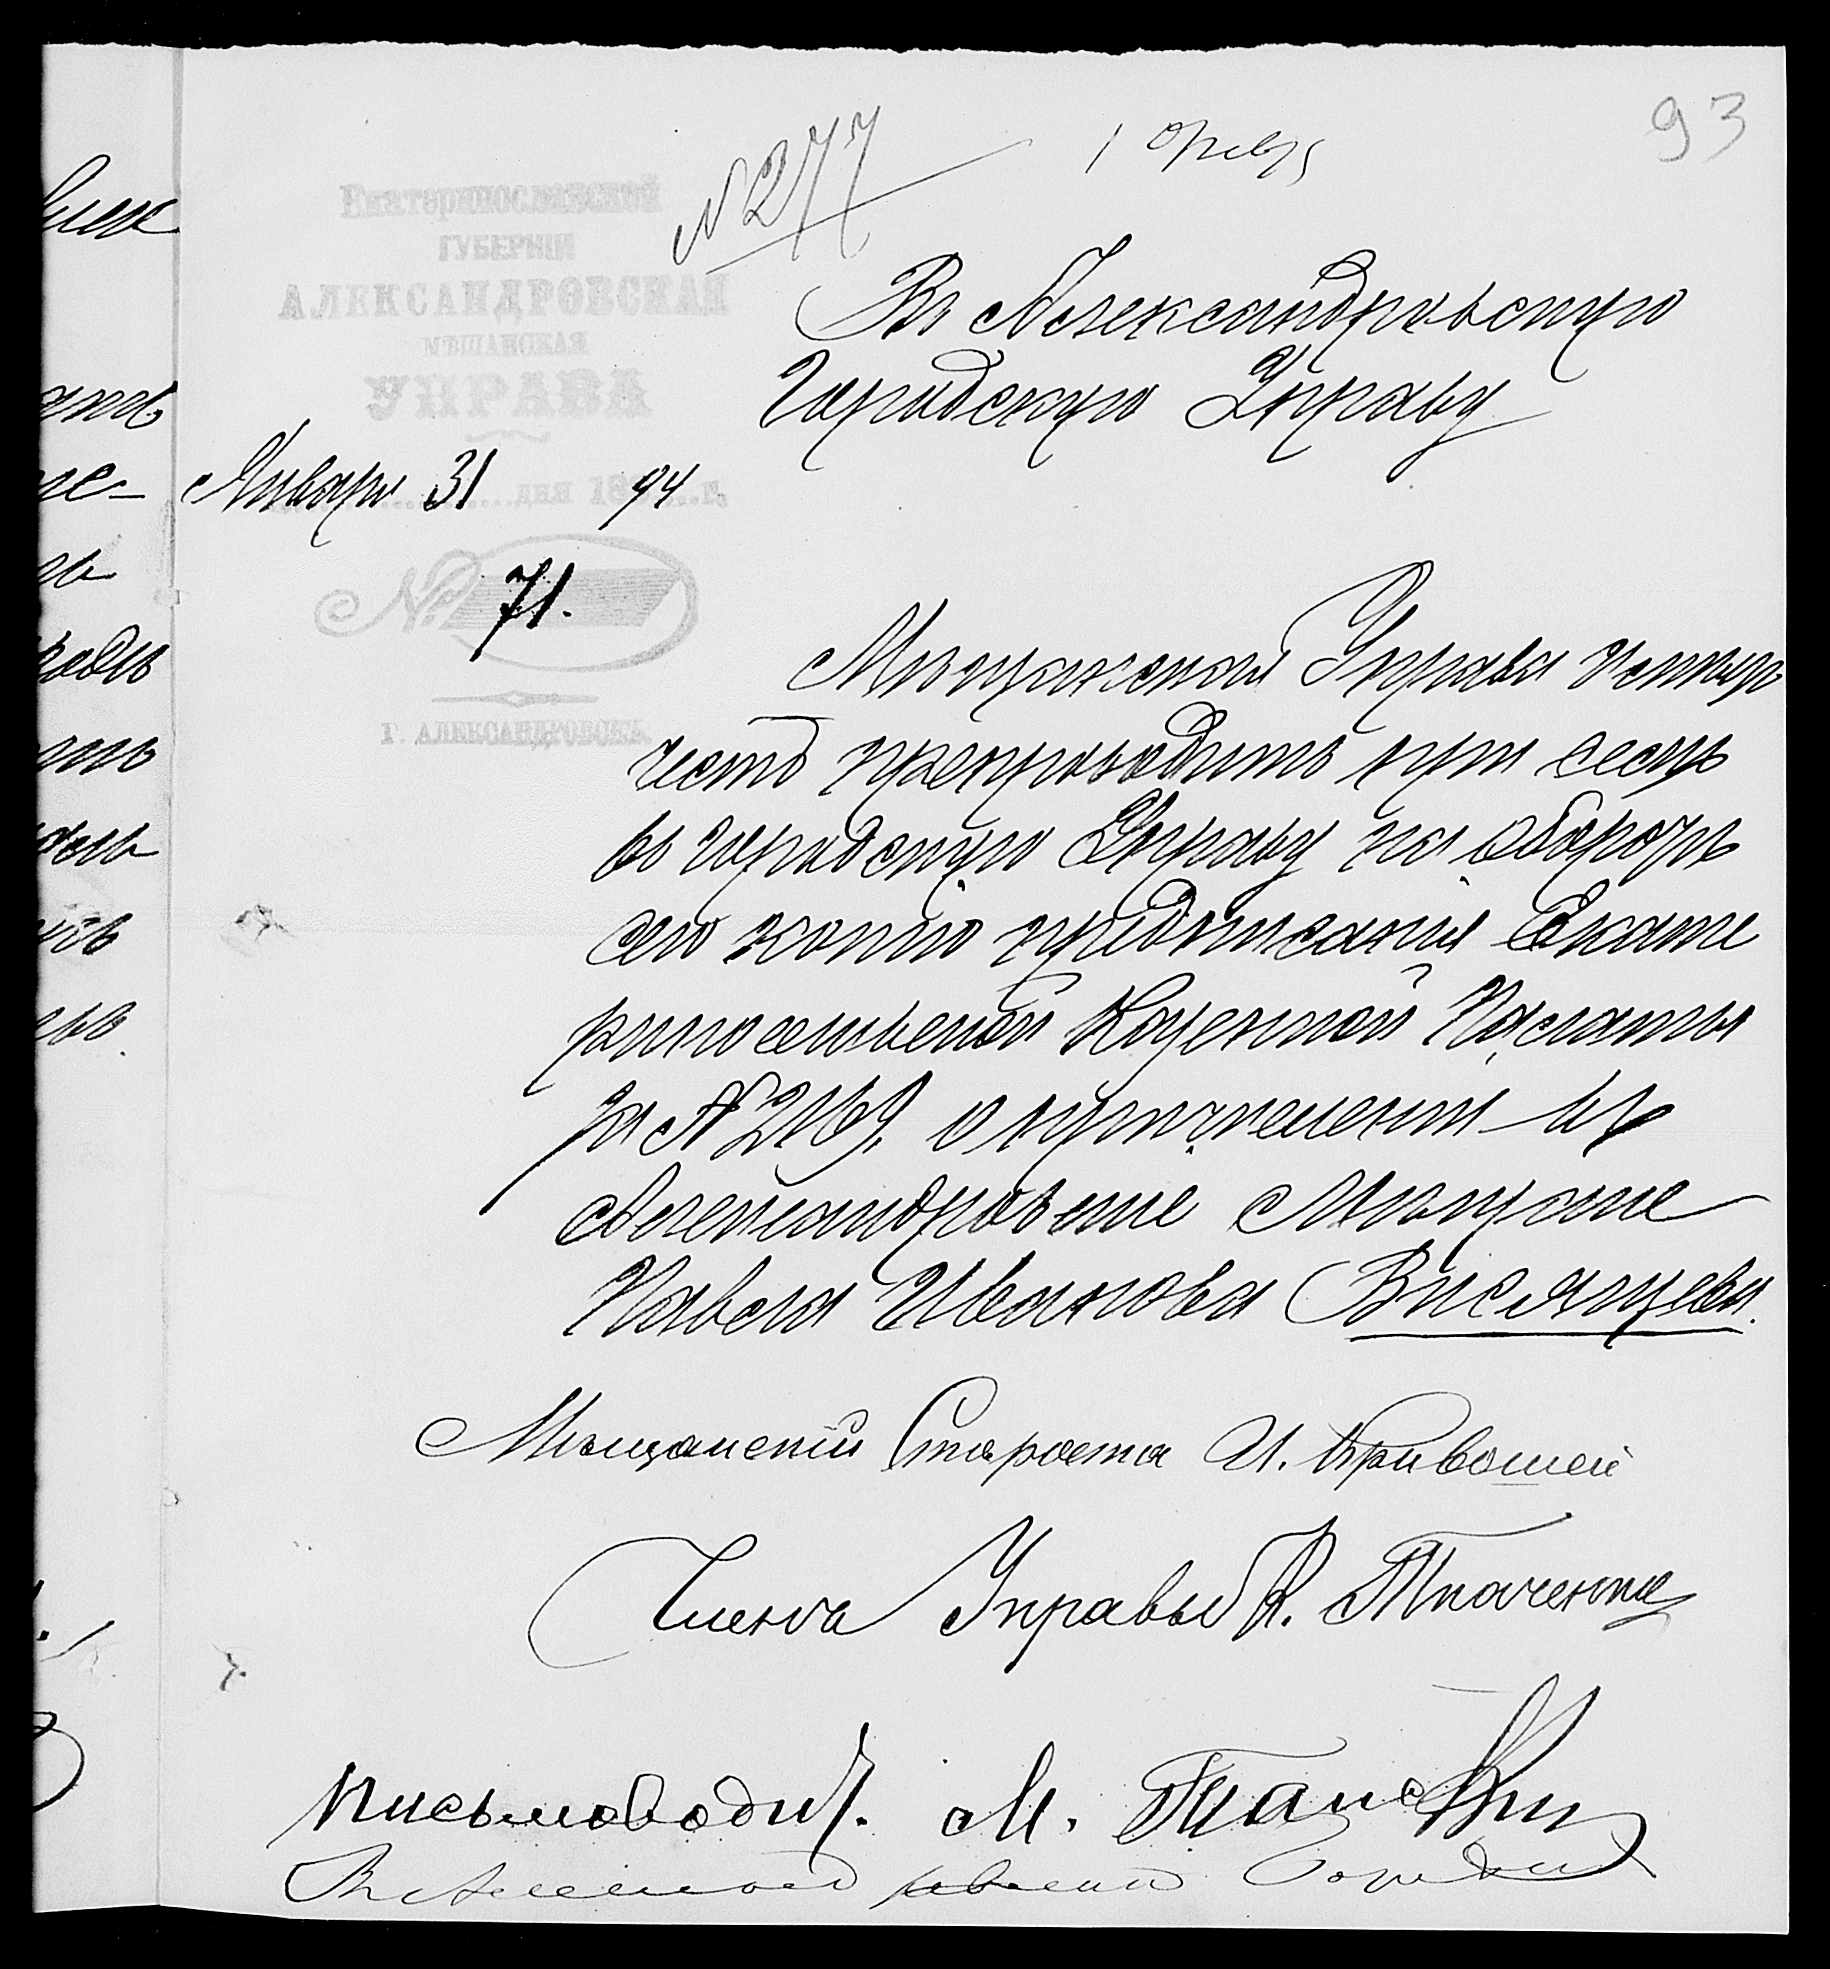 93
1 Февр
№ 277
Екатеринославской
ГУБЕРНІИ
АЛЕКСАНДРОВСКАЯ
МѢЩАНСКАЯ
УПРАВА
Января 31 дня 1894 г.
№ 71.
Г. АЛЕКСАНДРОВСКЪ
Въ Александровскую
Городскую Управу
Мѣщанская Управа имѣетъ
честь препроводить при семъ
въ городскую Управу на оборотѣ
сего копію предписанія Екате
ринославской Казенной Палаты
за № 2169, о причисленіи въ
Александровские Мѣщане
Павла Иванова Висящева.
Мѣщанскій Староста И. Кривошей
Члены Управы К. Ткаченко
Письмовод. М.